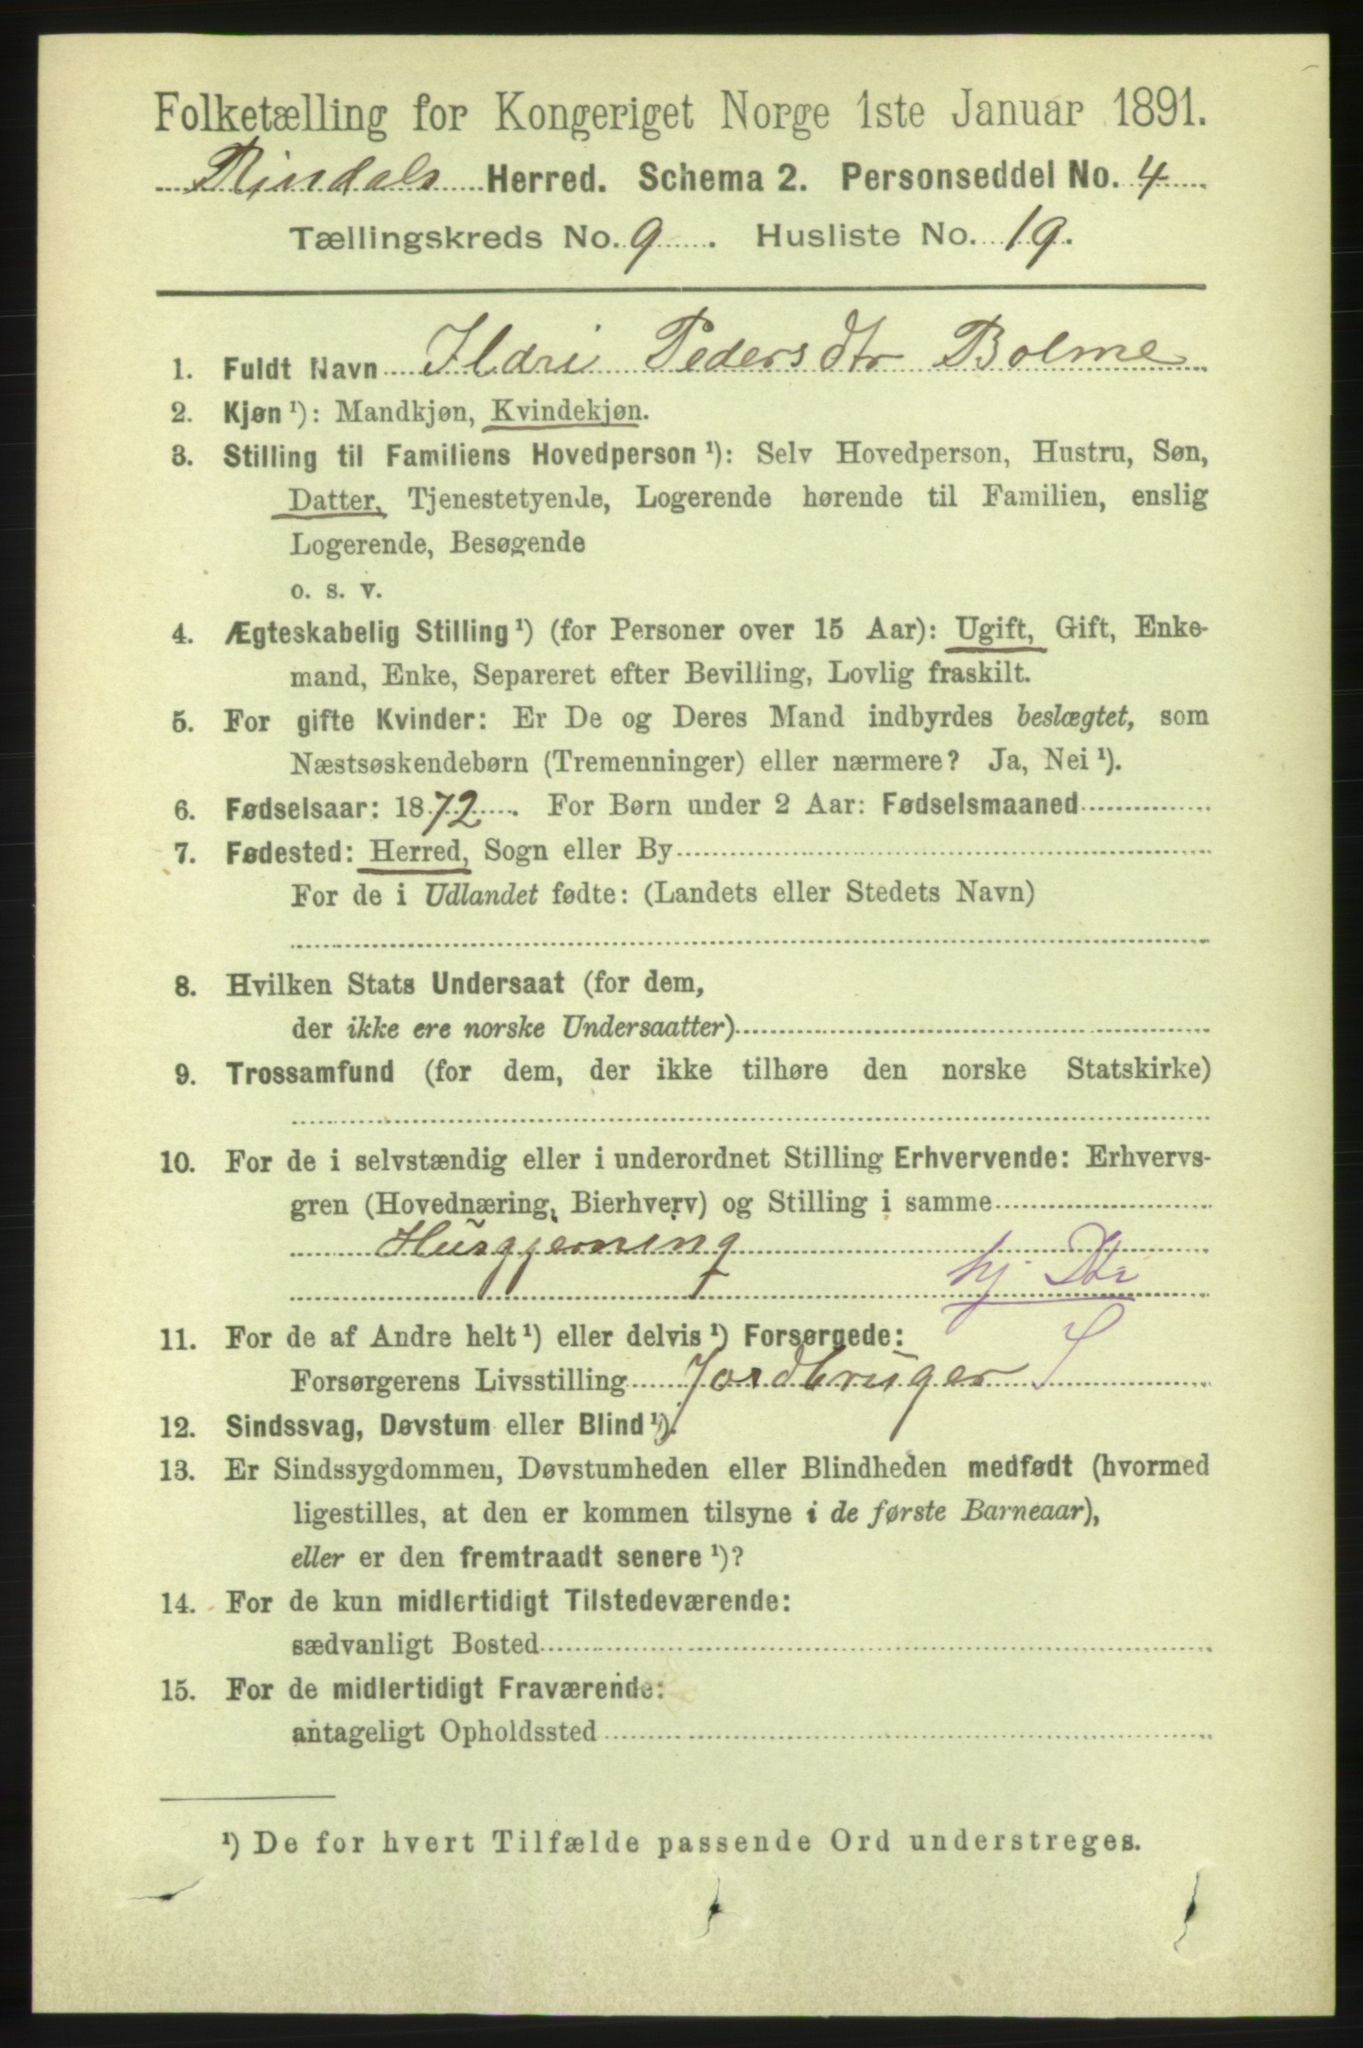 Folketælling for Kongeriget Norge 1ste Januar 1891.
Rindals Herred. Schema 2. Personseddel No. 4
Tællingskreds No. 9. Husliste No. 19.
1. Fuldt Navn Ildri Pedersdtr Bolme
2. Kjøn ¹): Mandkjøn, Kvindekjøn.
3. Stilling til Familiens Hovedperson ¹): Selv Hovedperson, Hustru, Søn,
Datter, Tjenestetyende, Logerende hørende til Familien, enslig
Logerende, Besøgende
o. s. v.
4. Ægteskabelig Stilling ¹) (for Personer over 15 Aar): Ugift, Gift, Enke-
mand, Enke, Separeret efter Bevilling, Lovlig fraskilt.
5. For gifte Kvinder: Er De og Deres Mand indbyrdes beslægtet, som
Næstsøskendebørn (Tremenninger) eller nærmere? Ja, Nei ¹).
6. Fødselsaar: 1872. For Børn under 2 Aar: Fødselsmaaned
7. Fødested: Herred, Sogn eller By
For de i Udlandet fødte: (Landets eller Stedets Navn)
8. Hvilken Stats Undersaat (for dem,
der ikke ere norske Undersaatter)
9. Trossamfund (for dem, der ikke tilhøre den norske Statskirke)
10. For de i selvstændig eller i underordnet Stilling Erhvervende: Erhvervs-
gren (Hovednæring, Bierhverv) og Stilling i samme
Husgjerning
hj. Dtr
11. For de af Andre helt ¹) eller delvis ¹) Forsørgede:
Forsørgerens Livsstilling Jordbruger S
12. Sindssvag, Døvstum eller Blind ¹).
13. Er Sindssygdommen, Døvstumheden eller Blindheden medfødt (hvormed
ligestilles, at den er kommen tilsyne i de første Barneaar),
eller er den fremtraadt senere ¹)?
14. For de kun midlertidigt Tilstedeværende:
sædvanligt Bosted
15. For de midlertidigt Fraværende:
antageligt Opholdssted
¹) De for hvert Tilfælde passende Ord understreges.